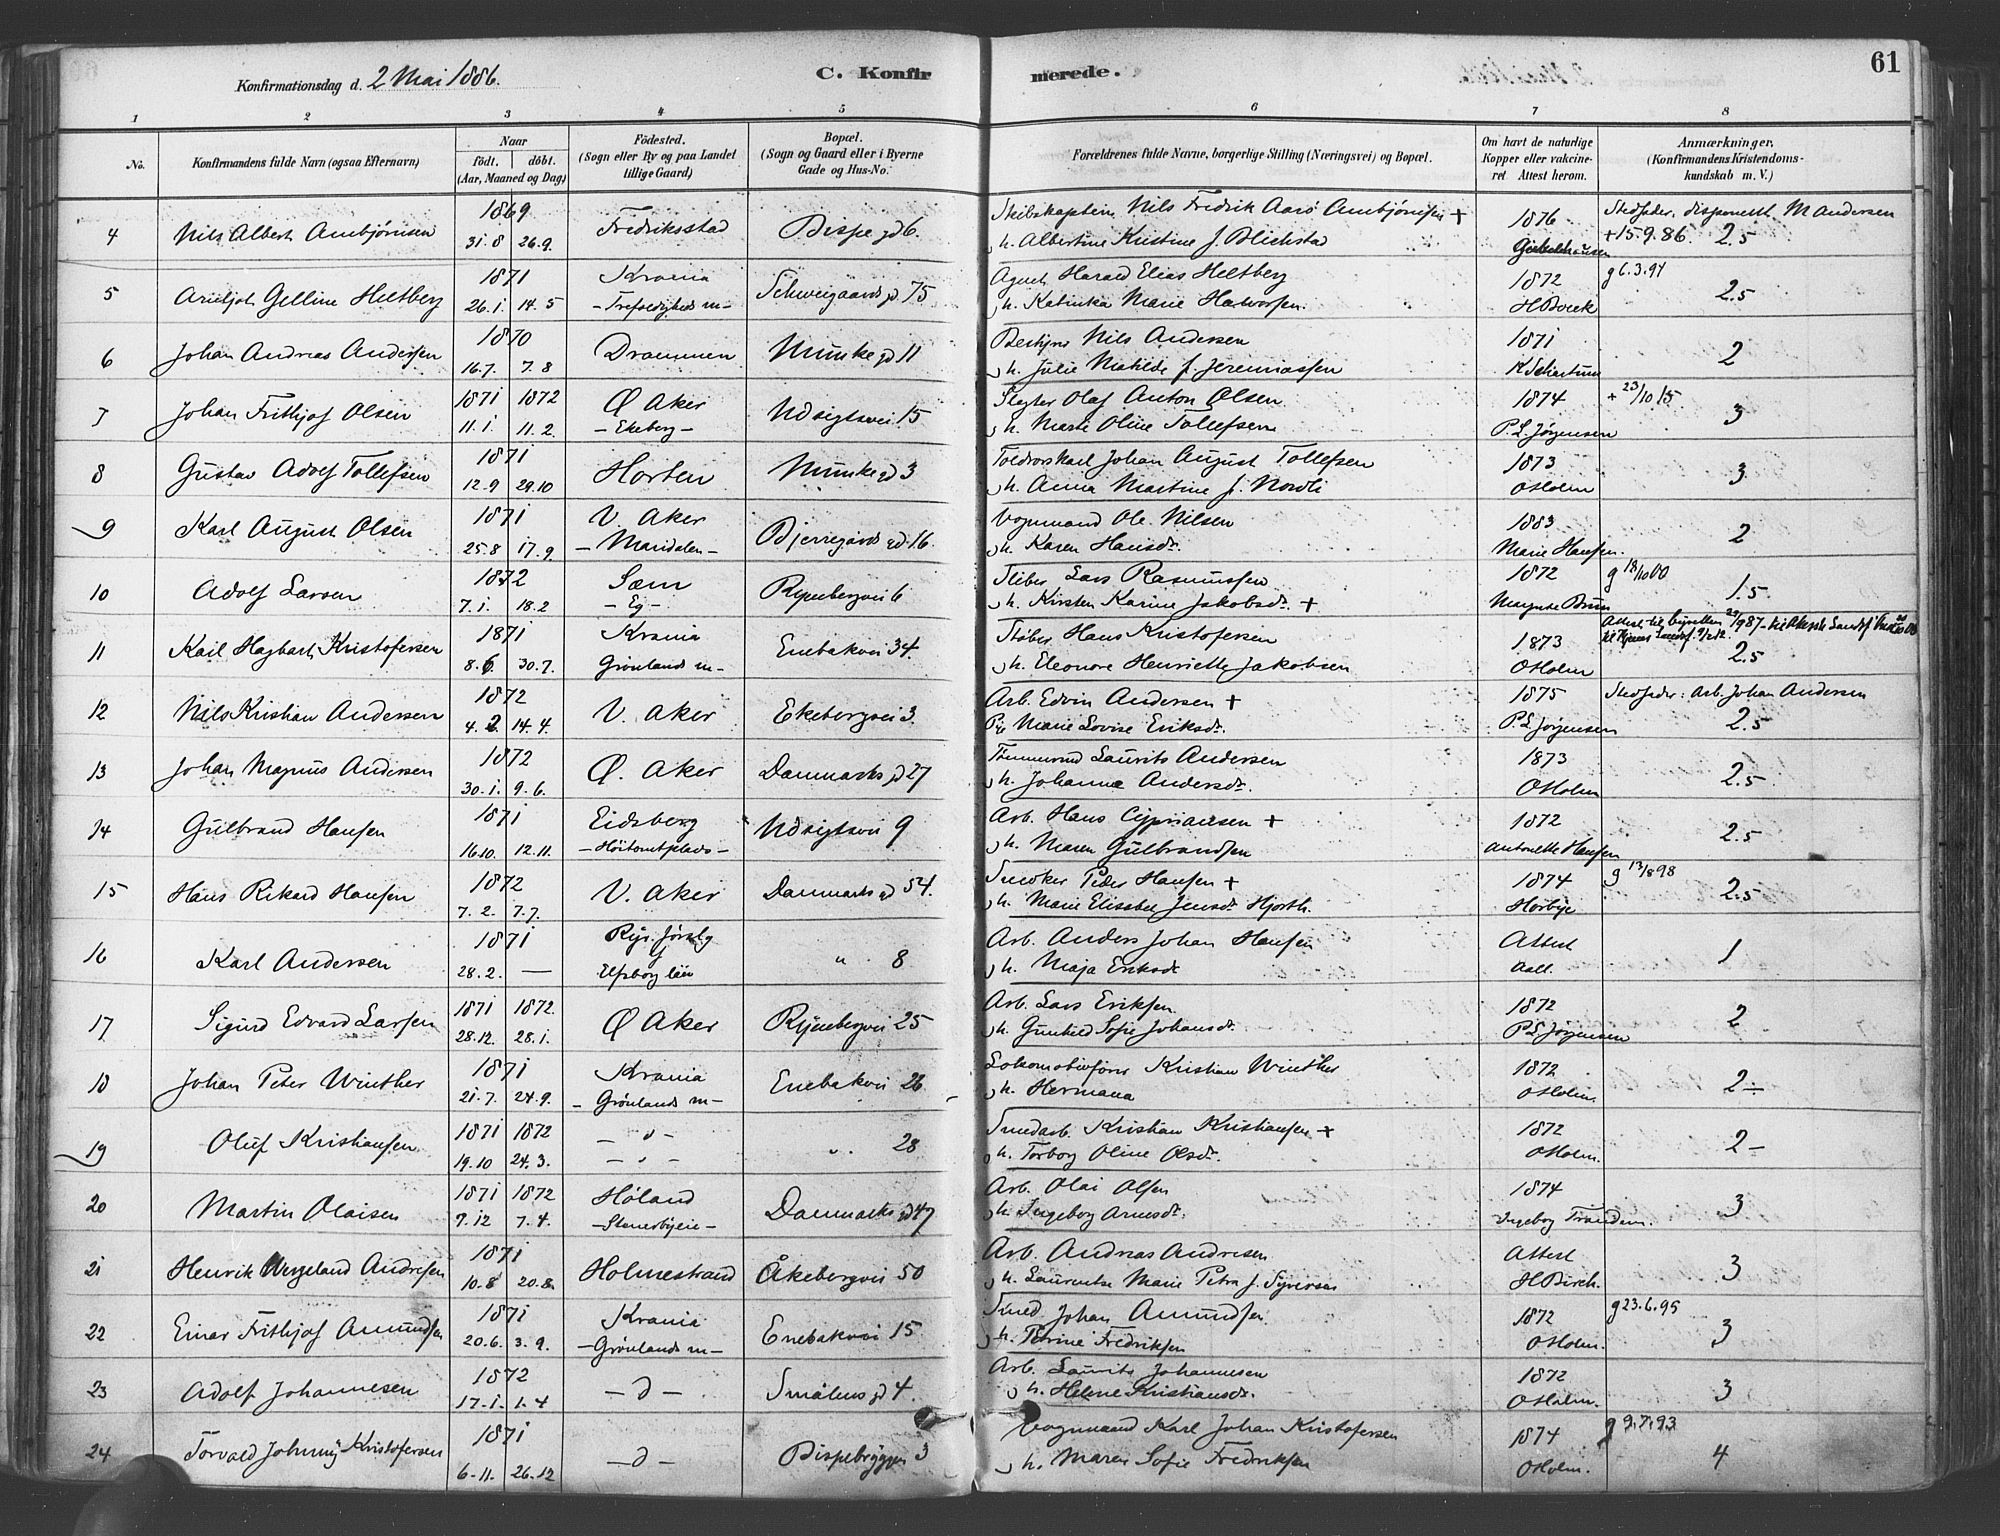 61
Konfirmationsdag d. 2 Mai 1886.
C. Konfirmerede.
1 2 3 4 5 6 7 8
No.
Konfirmandens fulde Navn (ogsaa Efternavn)
Naar
födt. döbt.
(Aar, Maaned og Dag)
Födested.
(Sogn eller By og paa Landet tillige Gaard)
Bopæl.
(Sogn og Gaard eller i Byerne Gade og Hus-No.
Forældrenes fulde Navne, borgerlige Stilling (Næringsvei) og Bopæl.
Om havt de naturlige Kopper eller vakcineret. Attest herom.
Anmærkninger.
(Konfirmandens Kristendomskundskab m. V.)
4 Nils Albert Ambjörnsen 1869 31.8 26.9. Fredriksstad Bispegd 6.
Skibskaptein Nils Fredrik Aarö Ambjörnsen +
h. Albertine Kristine f. Blichstad
1876
Stedfader: disponent M Andersen
+ 15.9.86. 2.5
5 Heltberg 1871 26.1. 14.5 Krania - Trefoldigheds m - Schweigaards gd 75
Agent Harald Elias Heltberg
h. Katinka Marie Halvorsen.
1872
g 6.3.94 2.5
6 Johan Andreas Andersen 1870 16.7. 7.8 Drammen Munkegd 11
Nils Andersen
h. Julie Matilde f. Jeremiassen
1871
K Schartum
2
7 Johan Frithjof Olsen 1871 1872 11.1. 11.2. Ø Aker - Ekeberg - Udsigtsvei 15
Slagter Olaf Anton Olsen
h. Marte Oline Tollefsen
1874
P.L. Jørgensen
+ 23/10 15 3
8 Gustav Adolf Tollefsen 1871 12.9 29.10 Horten Munkegd 3
Johan August Tollefsen
h. Anna Martine f. Nordli
1873
O Holm
3
9 Karl August Olsen 1871 25.8 17.9. V. Aker - Maridalen - 16.
Vognmand Ole Nilsen
h. Karen Hansdr.
1883
Marie Hansen.
2
10 Adolf Larsen 1872 7.1. 18.2 Sæm - Eg - Ryenbergvei 6
Lars Rasmussen
h. Kirsten Karine Jakobsdr. +
1872
g 18/10 00 1.5
11 Karl Hagbart Kristofersen 1871 8.6 30.7. Krania Grönlands m - Enebakvei 34.
Støber Hans Kristofersen
h. Eleonore Henriette Jakobsen
1873
O Holm
2.5
12 Nils Kristian Andersen 1872 4.2 14.4. V. Aker Ekebergvei 3.
Arb. Edvin Andersen +
Marie Lovise Eriksdr.
1875
P.L. Jørgensen
Stedfader: Arb. Johan Andersen
2.5
13 Johan Magnus Andersen 1872 30.1. 9.6. Ø. Aker Danmarks gd 27
Tømmermd Laurits Andersen
h. Johanne Andersdr.
1873
O Holm
2.5
14 Gulbrand Hansen 1871 16.10. 12.11. Eidsberg Udsigtsvei 9
Arb. Hans Cypriansen +
h. Maren Gulbrandsen
1872
Antonette Hansen
2.5
15 Hans Rikard Hansen 1872 7.2. 7.7. V. Aker Danmarks gd 54.
Peder Hansen +
h. Marie Elisabet Jensdr. Hjorth.
1874
Hørbye
g 13/8 98 2.5
16 Karl Andersen 1871 28.2. — Elfsborg län " 8
Arb. Anders Johan Hansen
h. Maja Eriksdr
Attest
Aall.
1
17 Sigurd Edvard Larsen 1871 1872. 28.12. 28.1. Ø Aker Ryenbergvei 25
Arb. Lars Eriksen
h. Gunhild Sofie Johansdr.
1872
P.L. Jørgensen
2
18 Johan Peter Winther 1871 21.7. 24.9. Krania - Grönlands m - Enebakvei 26
Lokomotivförer Kristian Winther
h. Hermana
1872
O Holm.
2-
19 Oluf Kristiansen 1871 1872 19.10 24.3. - " - - " - " 28
Smedarb. Kristian Kristiansen +
h. Torborg Oline Olsdr.
1872
O Holm.
2-
20 Martin Olaisen 1871 1872 7.12 7.4. Höland Danmarks gd 47
Arb. Olai Olsen
h. Ingeborg Arnesdr.
1874
3
21 Henrik Wergeland Andresen 1871 10.8 20.8. Holmestrand Åkebergvei 50
Arb. Andreas Andresen
h. Laurentse Marie Petra f. Syversen
Attest
H Birch.
3
22 Einar Frithjof Amundsen 1871 20.6. 3.9. Krania - Grönlands m - Enebakvei 15
Smed Johan Amundsen
h. Fredriksen
1872
O Holm.
g 23.6.95 3
23 Adolf Johannesen 1872 17.1. 1.4 - d - Smålens gd 4.
Arb. Laurits Johannesen
h. Helene Kristiansdr.
1872
O Holm.
3
24 Torvald Johnny Kristofersen 1871 6.11. 26.12 - d - Bispebryggen 3
Vognmand Karl Johan Kristofersen
h. Maren Sofie Fredriksen
1874
O Holm.
g 9.7.93 4